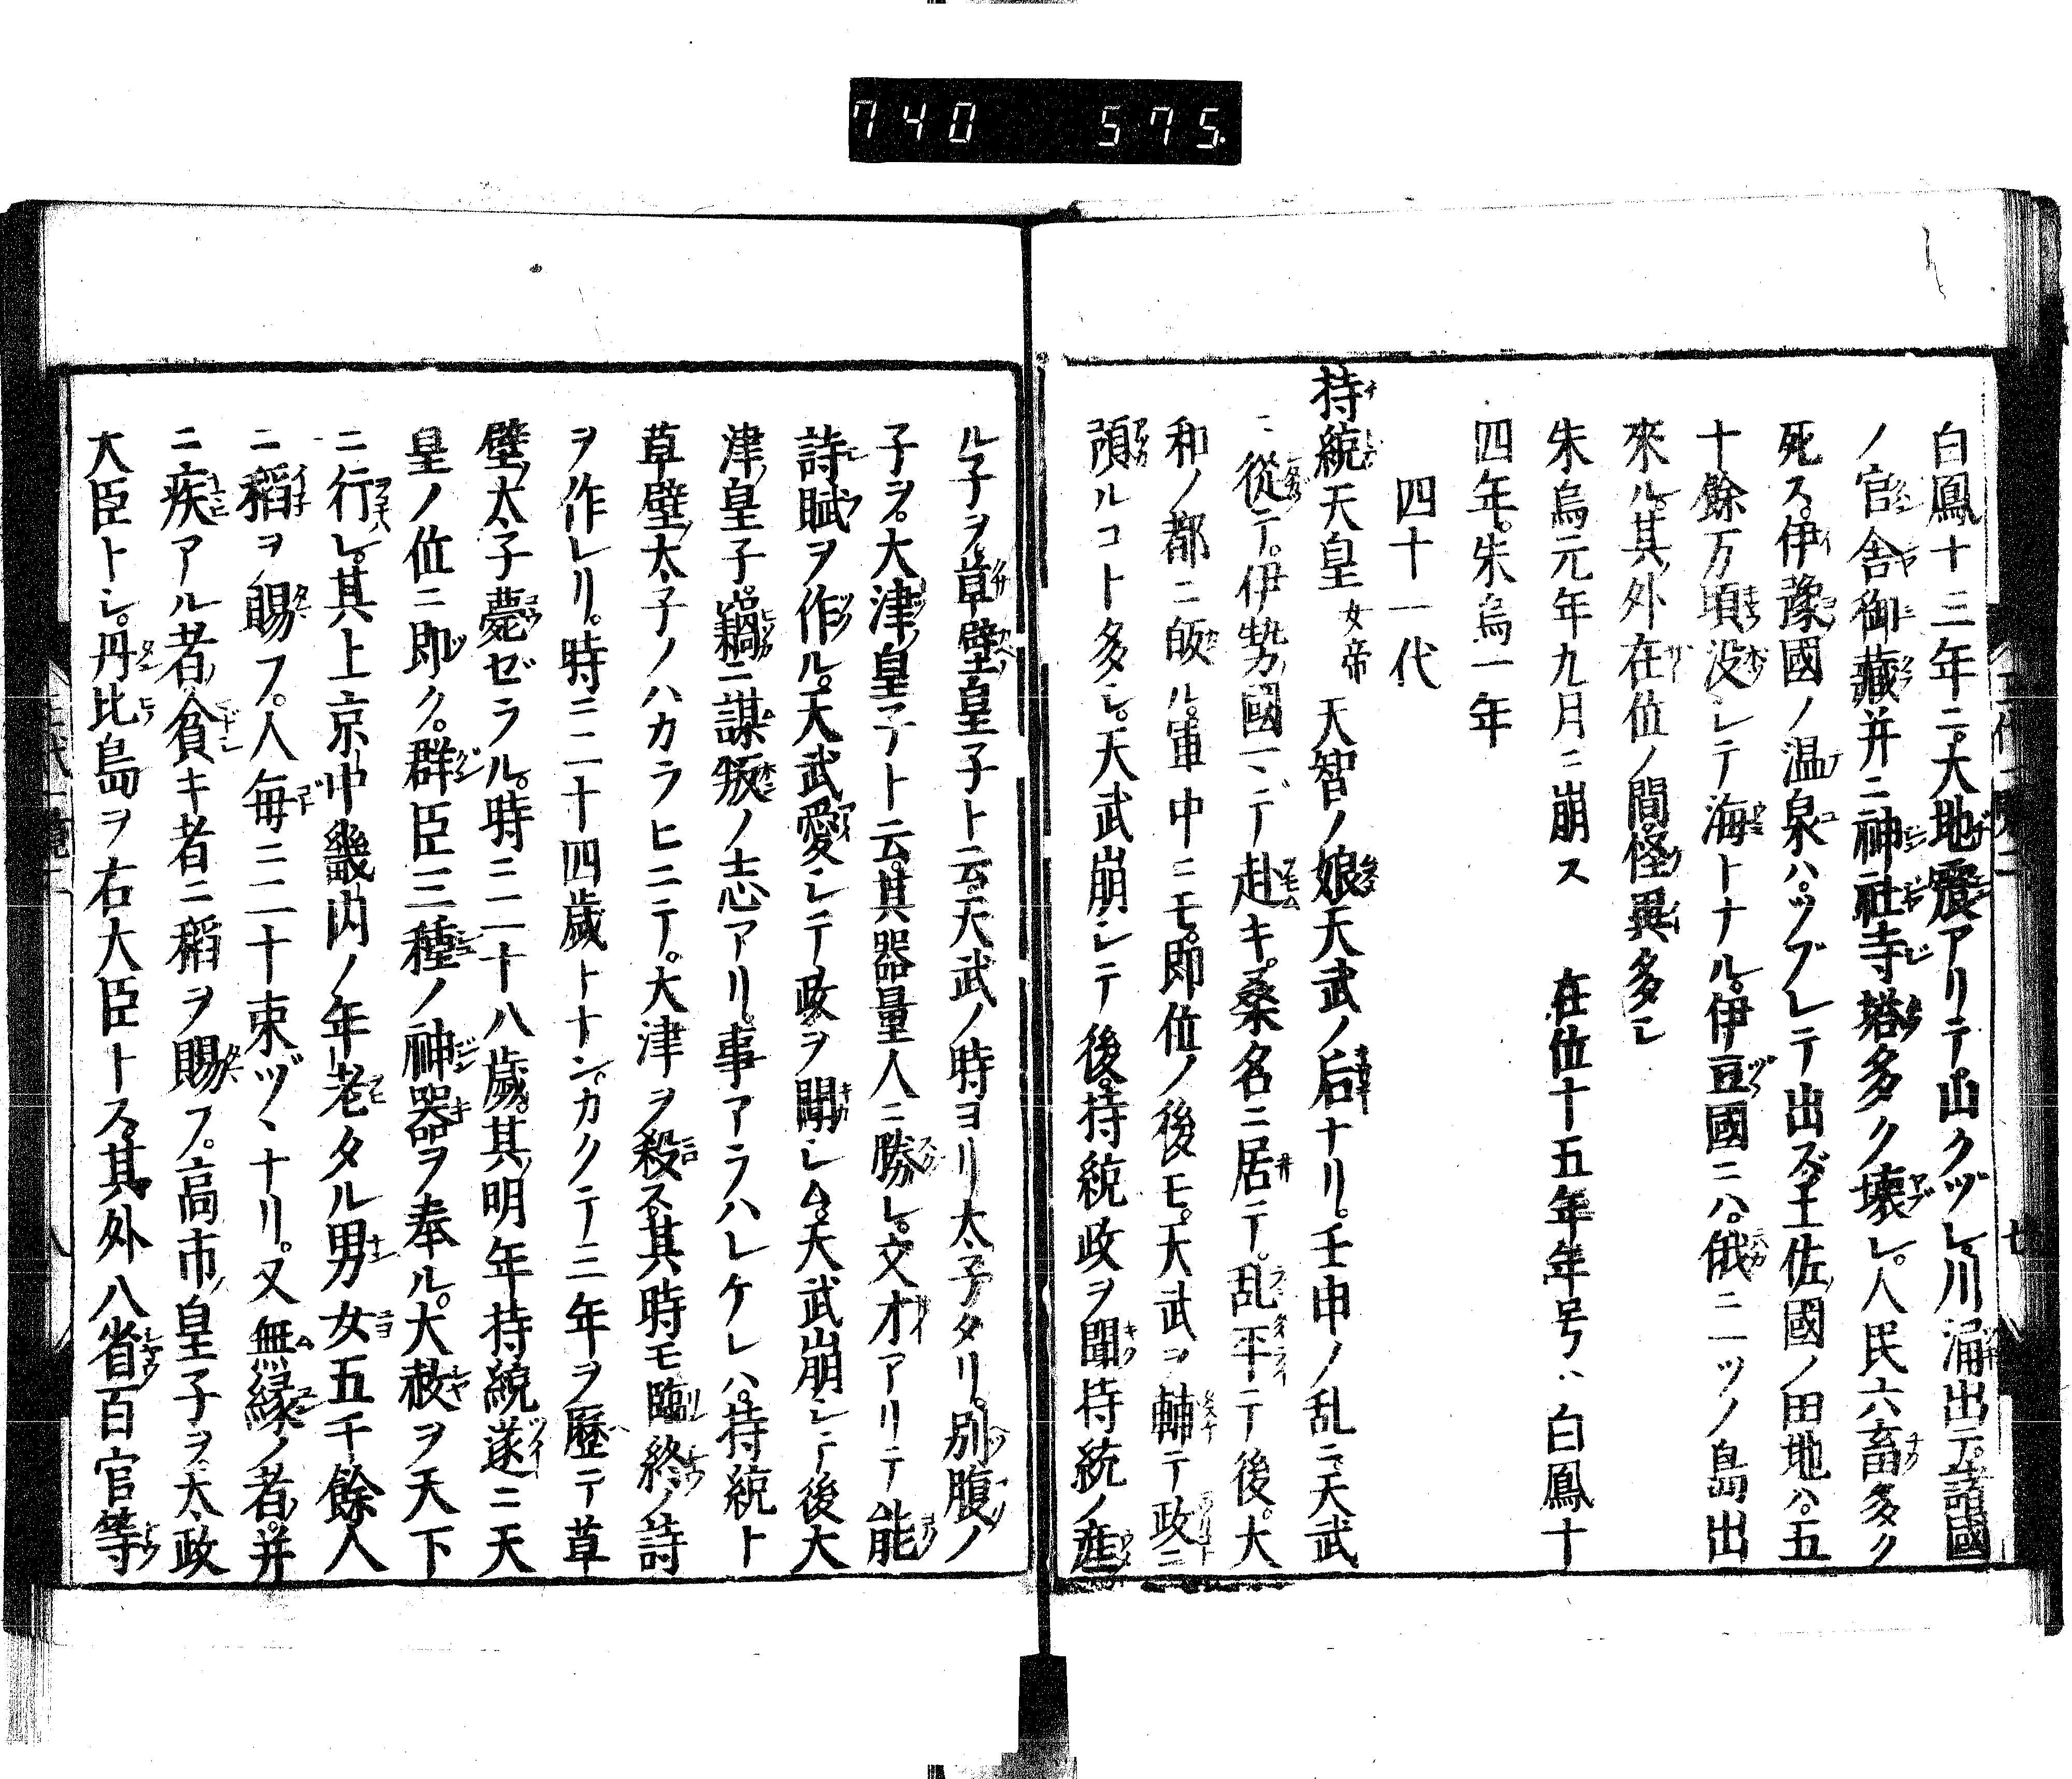 740 575
白鳳十三年ニ。大地震アリテ山クヅレ川涌出テ。諸國
ノ官舎御藏并ニ神社寺塔多ク壊レ。人民六畜多ク
死ス。伊豫國ノ温泉ハ。ツブレテ出ズ。土佐國ノ田地ハ。五
十餘万頃没シテ海トナル。伊豆國ニハ。俄ニ一ツノ島出
來ル。其外在位ノ間。怪異多シ
朱鳥元年九月ニ崩ス 在位十五年年号ハ白鳳十
四年。朱鳥一年
四十一代
持統天皇 女帝 天智ノ娘天武ノ后ナリ。壬申ノ乱ニ天武
ニ從テ。伊勢國マデ赴キ。桑名ニ居テ。乱平テ後。大
和ノ都ニ皈ル。軍中ニモ。即位ノ後モ。天武ヲ輔テ政ニ
預ルコト多シ。天武崩シテ後。持統政ヲ聞。持統ノ産
ル子ヲ草壁皇子ト云。天武ノ時ヨリ太子タリ。別腹ノ
子ヲ。大津皇子ト云。其器量人ニ勝レ。文才アリテ能
詩賦ヲ作ル。天武愛シテ政ヲ聞シム。天武崩シテ後大
津皇子。竊ニ謀叛ノ志アリ。事アラハレケレハ。持統ト
草壁太子ノハカラヒニテ。大津ヲ殺ス。其時モ臨終ノ詩
ヲ作レリ。時ニ二十四歳トナン。カクテ三年ヲ歴テ草
壁太子薨ゼラル。時ニ二十八歳。其明年持統遂ニ天
皇ノ位ニ即ク。群臣三種ノ神器ヲ奉ル。大赦ヲ天下
ニ行レ。其上京中畿内ノ年老タル男女五千餘人
ニ稲ヲ賜フ。人毎ニ二十束ヅヽナリ。又無縁ノ者。并
ニ疾アル者貧キ者ニ稲ヲ賜フ。高市皇子ヲ。太政
大臣トシ。丹比島ヲ右大臣トス。其外八省百官等